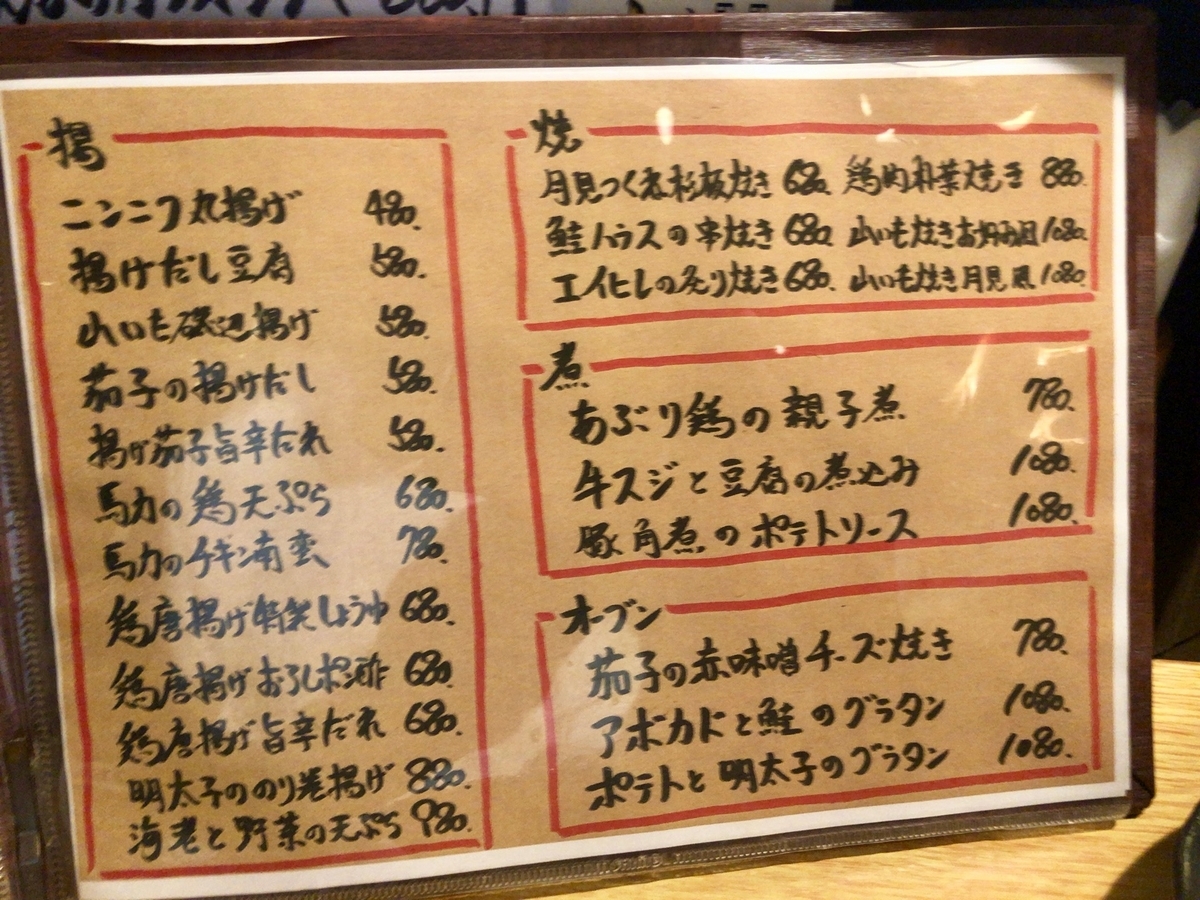 揚
ニンニク丸揚げ 480.
揚げだし豆腐 580.
山いも磯辺揚げ 580.
茄子の揚げだし 580.
揚げ茄子旨辛だれ 580.
馬力の鶏天ぷら 680.
馬力のチキン南蛮 780.
鶏唐揚げ特製しょうゆ 680.
鶏唐揚げおろしポン酢 680.
鶏唐揚げ旨辛だれ 680.
明太子ののり巻揚げ 880.
海老と野菜の天ぷら 980.
焼
月見つくね杉板焼き 680. 鶏肉朴葉焼き 880.
鮭ハラスの串焼き 680. 山いも焼きお好み風 1080.
エイヒレの炙り焼き 680. 山いも焼き月見風 1080.
煮
あぶり鶏の親子煮 780.
牛スジと豆腐の煮込み 1080.
豚角煮のポテトソース 1080.
オーブン
茄子の赤味噌チーズ焼き 780.
アボカドと鮭のグラタン 1080.
ポテトと明太子のグラタン 1080.